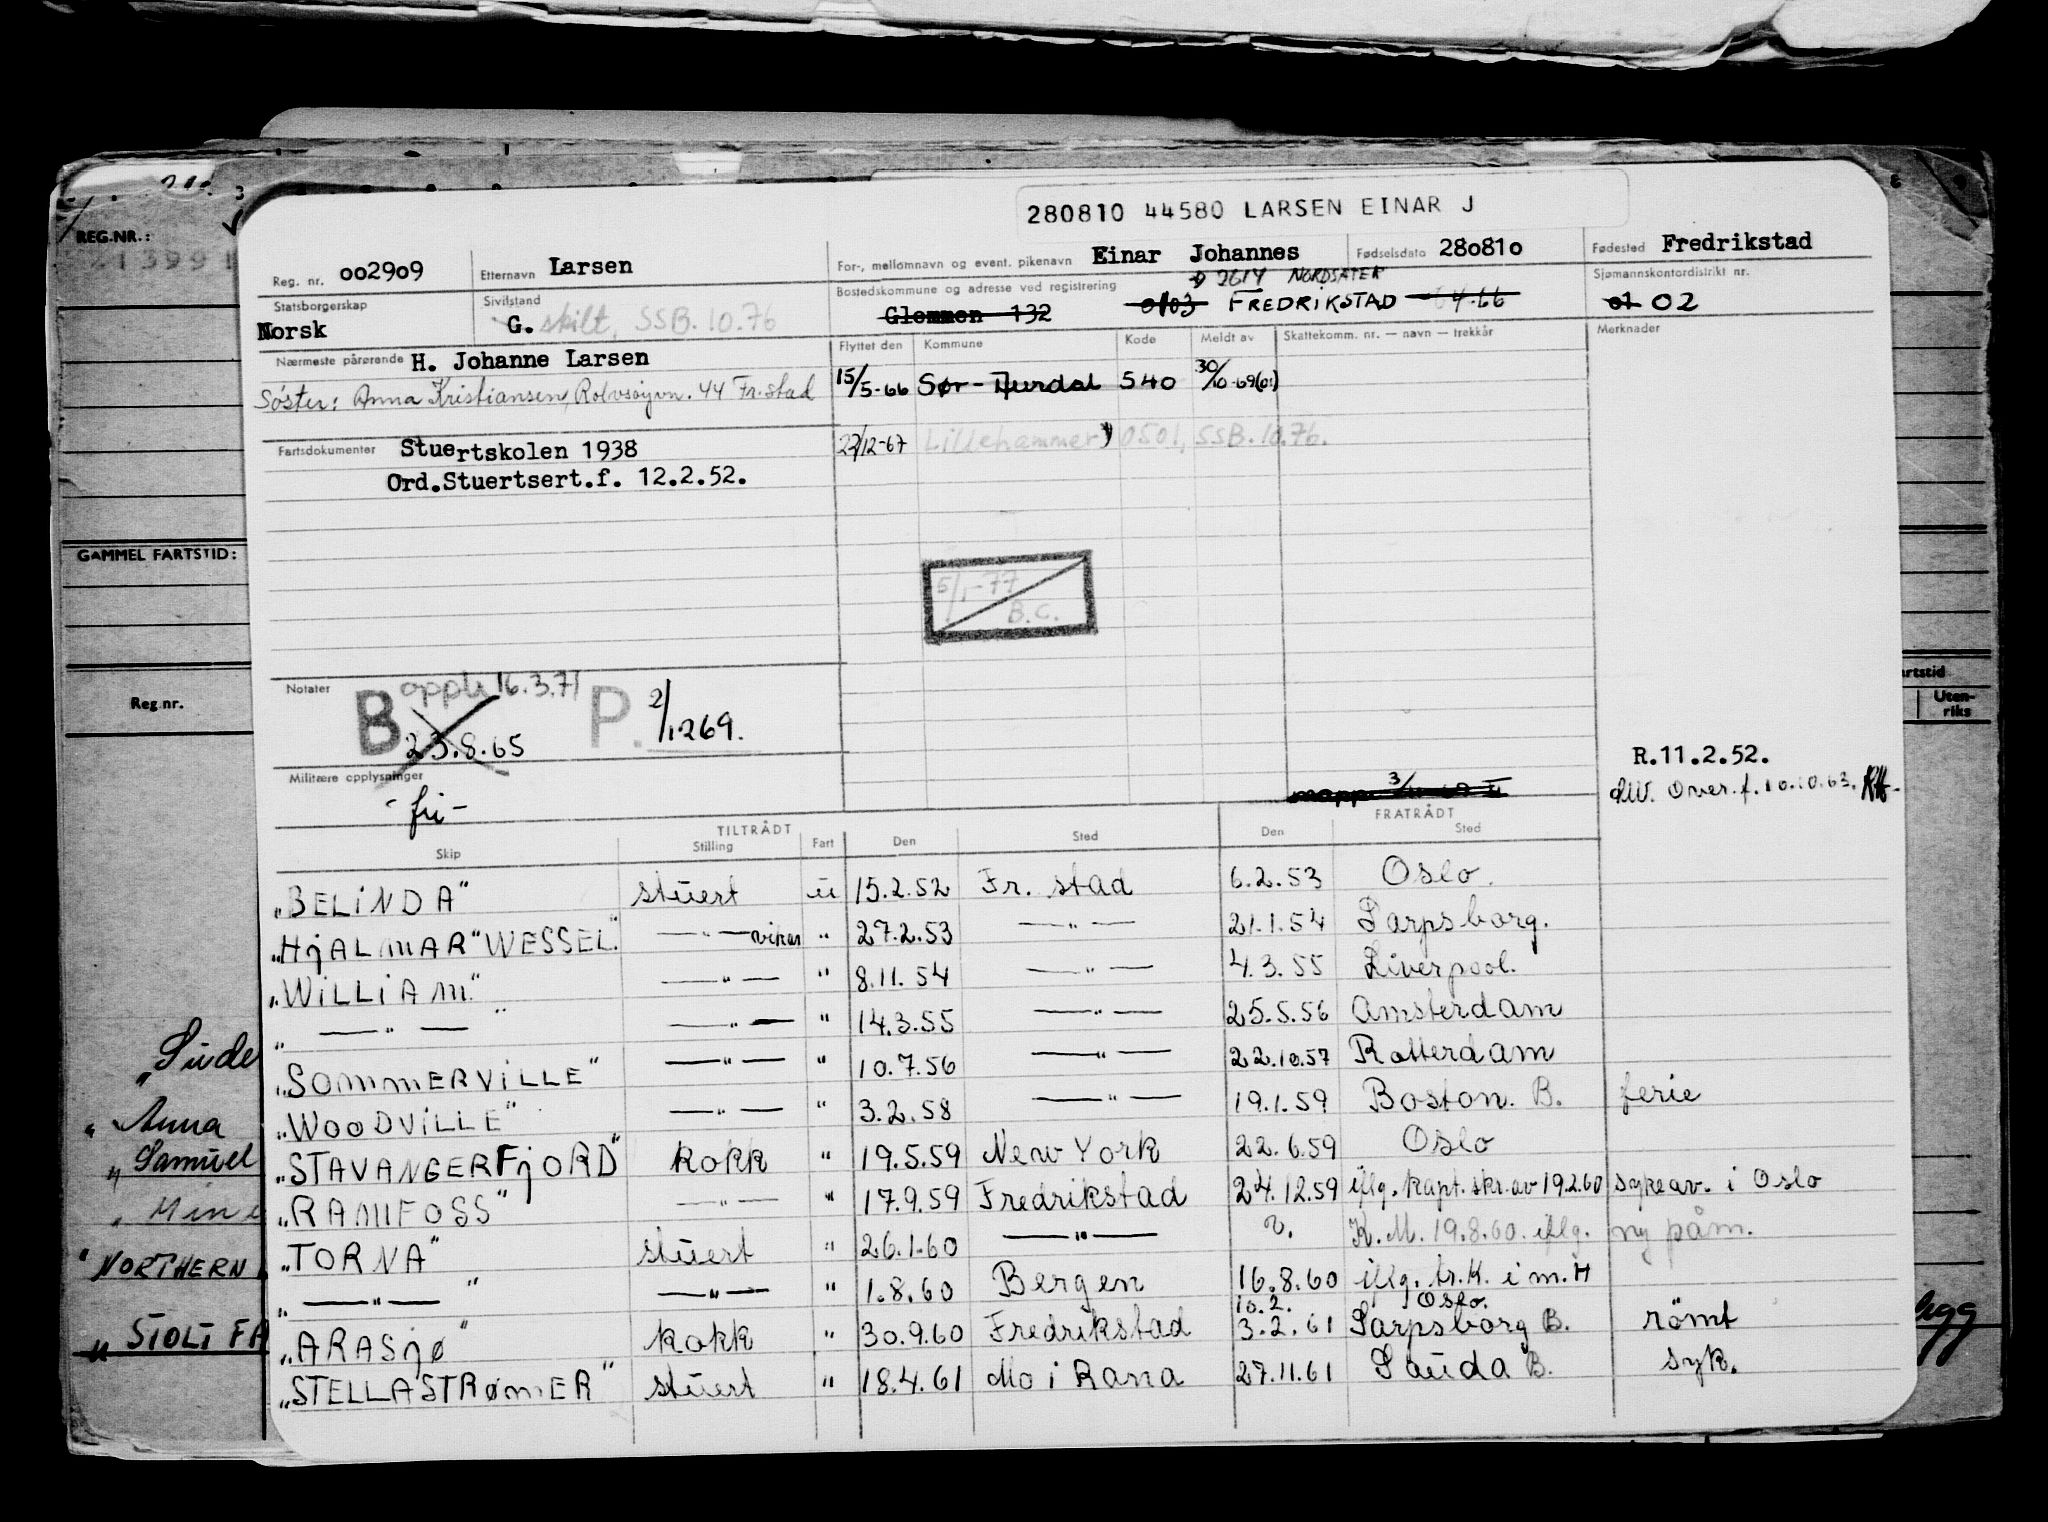 280810 44580 LARSEN EINAR J
REG.NR.:
Reg. nr. 002909 Etternavn Larsen For-, mellomnavn og event. pikenavn Einar Johannes Fødselsdato 280810 Fødested Fredrikstad
Statsborgerskap Norsk Sivilstand G. skilt, SSB. 10.76 Bostedskommune og adresse ved registrering Glemmen 132 0103 FREDRIKSTAD 2614 NORDSÆTER Sjømannskontordistrikt nr. 01 02
Nærmeste pårørende H. Johanne Larsen
Flyttet den Kommune Kode Meldt av Skattekomm. nr. — navn — trekkår Merknader
Søster: Anna Kristiansen, Rolvsøyvn. 44 Fr.stad
15/5-66 Sør-Aurdal 540 30/10-69(01)
Fartsdokumenter Stuertskolen 1938
22/12-67 Lillehammer 0501, SSB. 10.76.
Ord.Stuertsert.f. 12.2.52.
GAMMEL FARTSTID:
5/1-77
B.C.
Notater B opph 16.3.71 P. 2/1269.
23.8.65
Reg nr.
Uten-
riks
R.11.2.52.
Militære opplysninger
-fri-
Over.f. 10.10.63.
TILTRÅDT FRATRÅDT
Skip Stilling Fart Den Sted Den Sted
"BELINDA" stuert u 15.2.52 Fr. stad 6.2.53 Oslo.
"HjALMAR" WESSEL." —"— vikar " 27.2.53 —"— 21.1.54 Sarpsborg.
"WiLLiAM." —"— " 8.11.54 —"— 4.3.55 Liverpool.
" —"— " —"— " 14.3.55 —"— 25.5.56 Amsterdam
"SOMMERViLLE" —"— " 10.7.56 —"— 22.10.57 Rotterdam
"WOODViLLE" —"— " 3.2.58 —"— 19.1.59 Boston. B. ferie
"STAVANGERFjORD" kokk " 19.5.59 New York 22.6.59 Oslo
"RAMFOSS" —"— " 17.9.59 Fredrikstad 24.12.59 iflg. kapt. skr. av 19.2.60 sykeav. i Oslo
"TORNA" stuert " 26.1.60 —"— ?. K.M. 19.8.60. iflg. ny påm.
" —"— " —"— " 1.8.60 Bergen 16.8.60 iflg. tr.k. i m.H
10.2. Oslo.
"ARASjø" kokk " 30.9.60 Fredrikstad 3.2.61 Sarpsborg B. römt
"STELLASTRømER" stuert " 18.4.61 Mo i Rana 27.11.61 Sauda B. syk.
"Anna
"Samuel
"NORTHERN